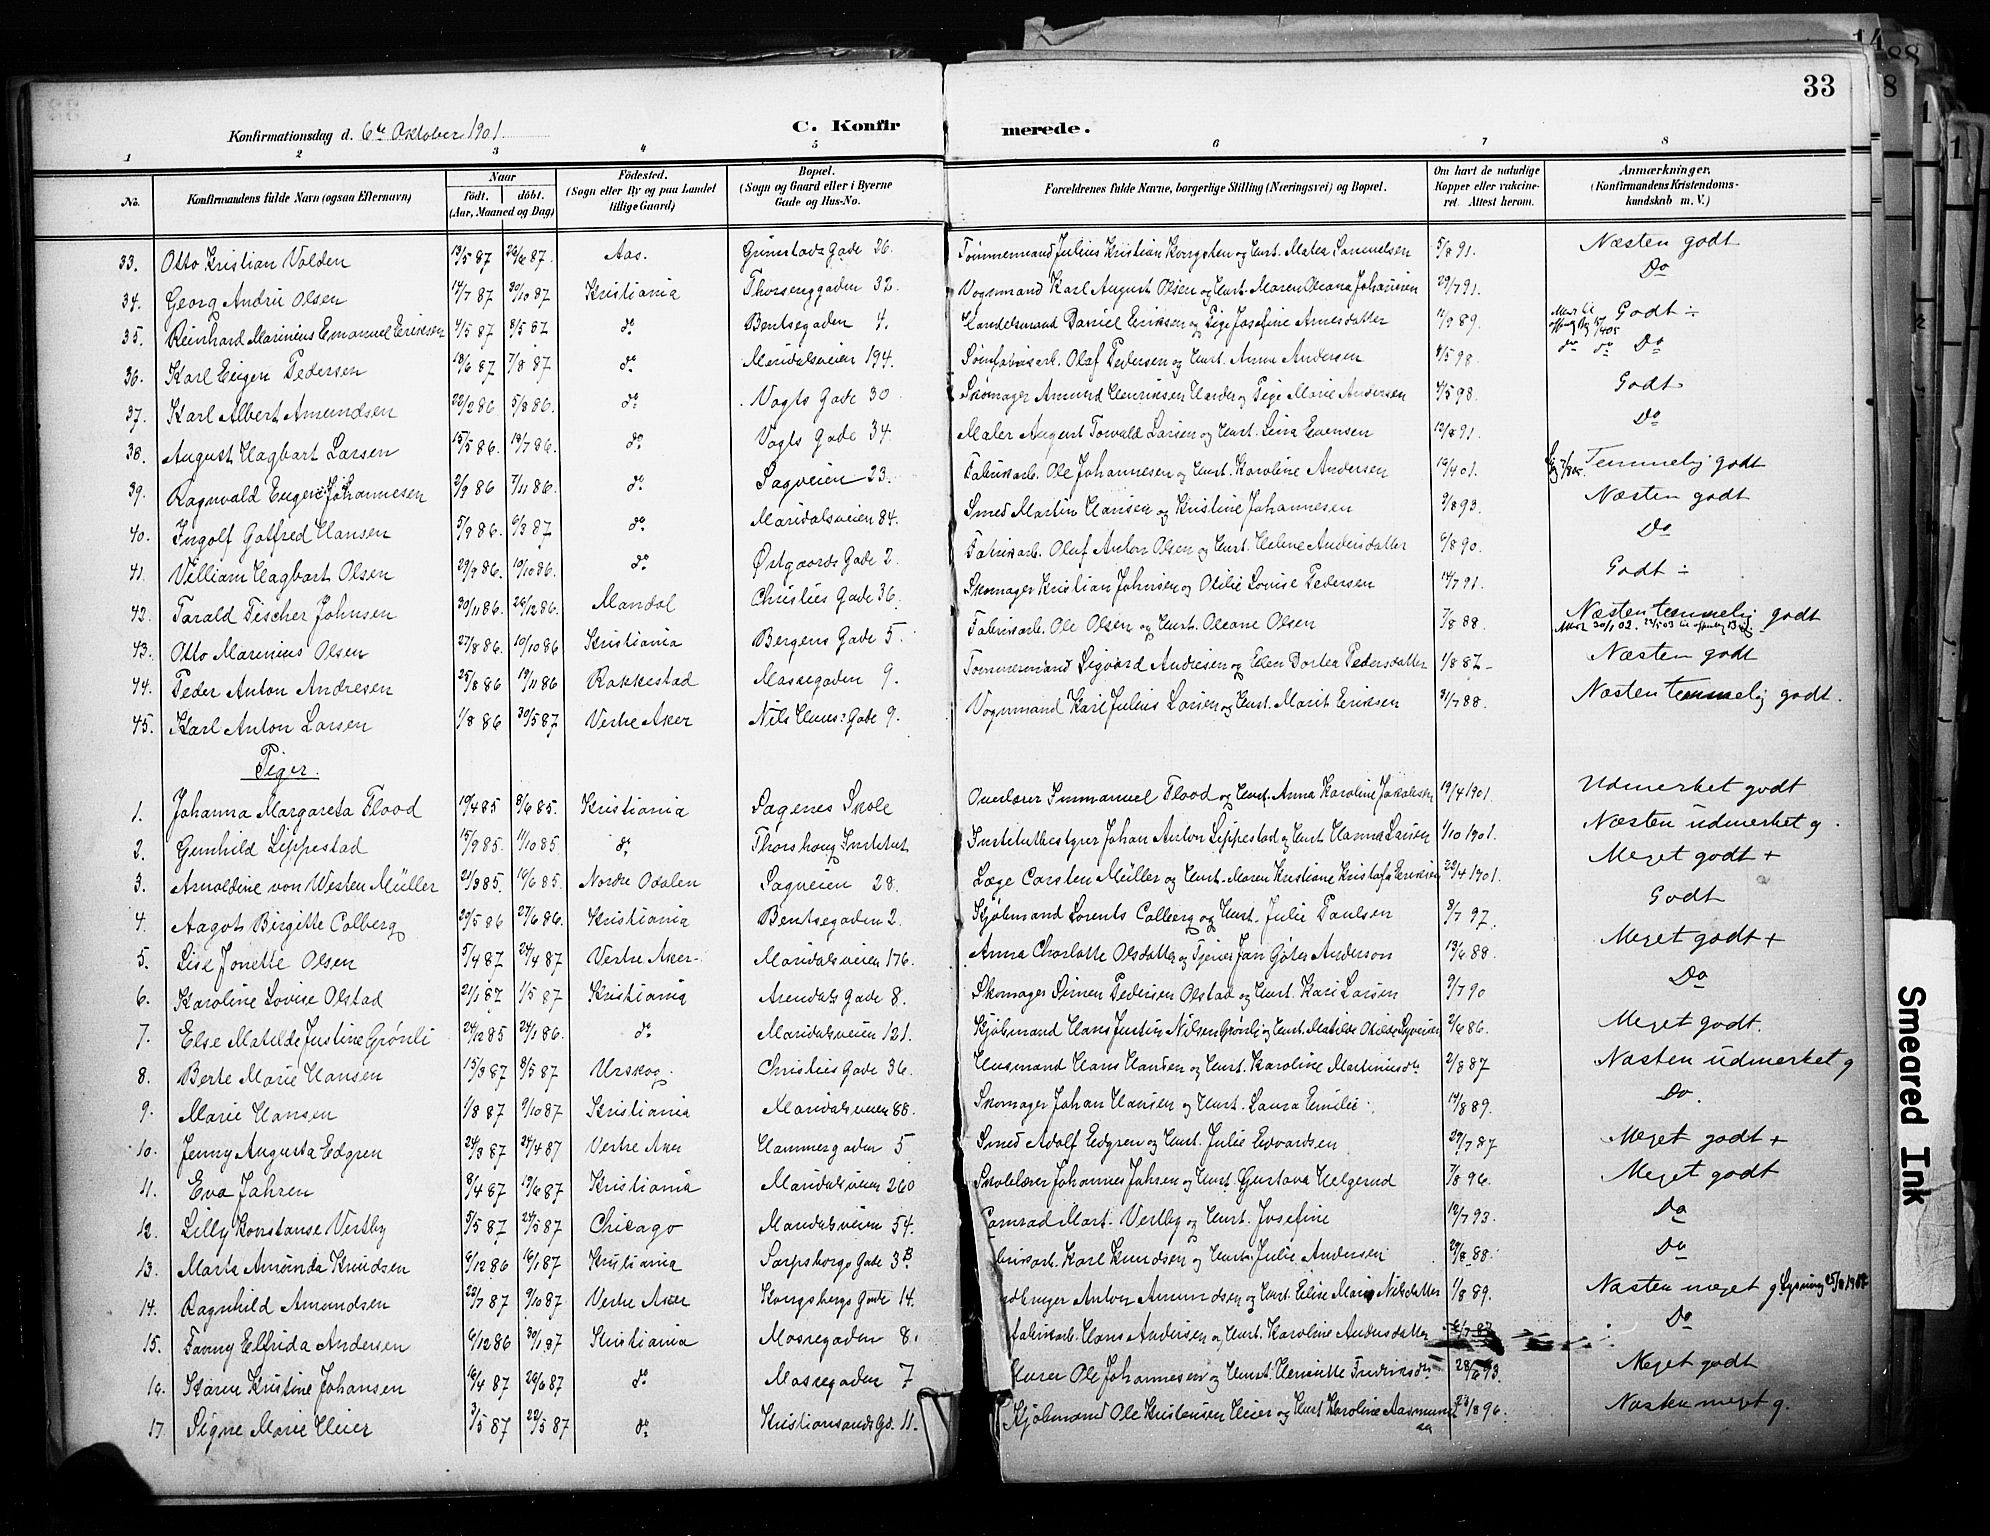 33
Konfirmationsdag d. 6te Oktober 1901.
C. Konfirmerede.
1 2 3 4 5 6 7 8
No. Konfirmandens fulde Navn (ogsaa Efternavn) Naar født. døbt. (Aar, Maaned og Dag) Fødested. (Sogn eller By og paa Landet tillige Gaard) Bopæl. (Sogn og Gaard eller i Byerne Gade og Hus-No. Forældrenes fulde Navne, borgerlige Stilling (Næringsvei) og Bopæl. Om havt de naturlige Kopper eller vaccineret. Attest herom. Anmærkninger. (Konfirmandens Kristendomskundskab m. V.)
33. Otto Kristian Volden 19/5 87 26/6 87. Aas. Grimstads Gade 26. Tømmermand Julius Kristian Kongsten og Hust. Matea Samuelsen 5/8 91. Næsten godt
34. Georg Andru Olsen 14/7 87 30/10 87 Kristiania Thorsenggaden 32. Vognmand Karl August Olsen og Hust. Maren Oleana Johansen 29/7 91. Do
35. Reinhard Marinius Emanuel Eriksen 4/5 87 8/5 87 do Bentsegaden 4. Handelsmand Daniel Eriksen og Pige Josefine Arnesdatter 11/9 89. Godt ÷
36. Karl Eugen Pedersen 13/6 87 7/8 87 do Maridalsveien 194. Olaf Pedersen og Hust. Anna Andersen 4/5 98. do do Do
37. Karl Albert Amundsen 22/2 86 5/3 86. do Vogts Gade 30 Skomager Amund Henriksen og Pige Marie Andersen 4/5 98. Godt
38. August Hagbart Larsen 15/5 86. 19/7 86. do Vogts Gade 34. Maler August Torvald Larsen og Hust. Lina Evensen 12/8 91. Do
39. Ragnvald Eugen Johannesen 2/9 86 7/11 86. do Sagveien 23. Fabrikarb. Ole Johannesen og Hust. Karoline Andersen 12/4 01. Temmelig godt
40. Ingolf Gotfred Hansen 5/9 86. 6/3 87 do Maridalsveien 84. Smed Martin Hansen og Kristine Johannesen 9/8 93. Næsten godt
41. Villiam Hagbart Olsen 29/9 86. 19/10 86. do Østgaards Gade 2. Fabrikarb. Oluf Anton Olsen og Hust. Helene Andersdatter 6/8 90. Do
42. Tarald Fischer Johnsen 30/11 86. 26/12 86. Mandal Christies Gade 36. Skomager Kristian Johnsen og Otilie Lovise Pedersen 14/7 91. Godt ÷
43. Otto Marinius Olsen 27/8 86. 10/10 86 Kristiania Bergens Gade 5. Fabrikarb. Ole Olsen og Hust. Oleane Olsen 7/8 88. Næsten temmelig godt
44. Peder Anton Andresen 25/8 86 19/11 86 Rakkestad Mossegaden 9. Tømmermand Sigvard Andresen og Elen Dortea Pedersdatter 1/8 87 - Næsten godt
45. Karl Anton Larsen 1/8 86 30/5 87 Vestre Aker Nils Huus' Gade 9. Vognmand Karl Julius Larsen og Hust. Marit Eriksen 31/7 88. Næsten temmelig godt.
Piger.
1. Johanna Margareta Flood 19/4 85 8/6 85. Kristiania Sagenes Skole Overlærer Immanuel Flood og Hust. Anna Karoline Jakobsen 19/4 1901. Udmerket godt
2. Gunhild Lippestad 15/9 85. 11/10 85 do Thorshaug Institut Institutbestyrer Johan Anton Lippestad og Hust. Hanna Larsen 1/10 1901. Næsten udmerket g.
3. Arnoldine von Westen Müller 21/3 85. 16/6 85. Nordre Odalen Sagveien 28. Læge Carsten Müller og Hust. Maren Kristiane Kristofa Eriksen 22/4 1901. Meget godt +
4. Aagot Birgitte Colberg 29/5 86 27/6 86. Kristiania Bentsegaden 2. Kjøbmand Lorents Colberg og Hust. Julie Paulsen 8/7 97. Godt
5. Lise Jonette Olsen 5/4 87 24/4 87 Vestre Aker Maridalsveien 176. Anna Charlotte Olsdatter og Tjener Jan Göter Anderson 13/6 88. Meget godt +
6. Karoline Lovise Olstad 21/1 87 1/5 87 Kristiania Arendals Gade 8. Skomager Simen Pedersen Olstad og Hust. Kari Larsen 9/7 90 Do
7. Else Matilde Justine Grønli 24/12 85 24/1 86. do Maridalsveien 121. Kjøbmand Hans Justin Nilsen Grønli og Hust. Matilde Otilde Syversen 2/6 86. Meget godt.
8. Berte Marie Hansen 15/3 87 8/5 87 Urskog. Christies Gade 36. Husmand Hans Hansen og Hust. Karoline Martinusdr. 2/8 87 Næsten udmerket g
9. Marie Hansen 1/8 87 9/10 87 Kristiania Maridalsveien 88. Skomager Johan Hansen og Hust. Laura Emilie. 14/8 89. Do.
10. Jenny Augusta Edgren 24/3 87 24/4 87 Vestre Aker Hammergaden 5. Smed Adolf Edgren og Hust. Julie Edvardsen 29/7 87. Meget godt +
11. Eva Jahren 8/4 87 19/6 87 Kristiania Maridalsveien 260 Skolelærer Johannes Jahren og Hust. Gustava Helgerud 7/8 96. Meget godt
12. Lilly Konstanse Vestby 5/5 87 29/5 87 Chicago Maridalsveien 54. Konrad Mart. Vestby og Hust. Josefine 12/7 93. Do
13. Marta Amanda Knudsen 6/12 86 16/1 87 Kristiania Sarpsborgs Gade 3B Karl Knudsen og Hust. Julie Andersen 29/8 88. Do
14. Ragnhild Amundsen 22/7 87 9/10 87 Vestre Aker Kongsbergs Gade 14. Anton Amundsen og Hust. Elise Marie Nilsdatter 1/8 89. Næsten meget g Lysning 25/8 1907
15. Fanny Elfrida Andersen 6/12 86 30/1 87 Kristiania Mossegaden 8. Fabrikarb. Hans Andersen og Hust. Karoline Andersdatter Do
16. Karen Kristine Johansen 16/4 87 26/6 87 do Mossegaden 7 Murer Ole Johannesen og Hust. Henriette Fredriksdr. 28/6 93. Meget godt
17. Signe Marie Heier 3/5 87 22/5 87 do Kristiansands Gd. 11. Kjøbmand Ole Kristensen Heier og Hust. Karoline Aasmunds 23/8 96. Næsten meget g.
Smeared Ink